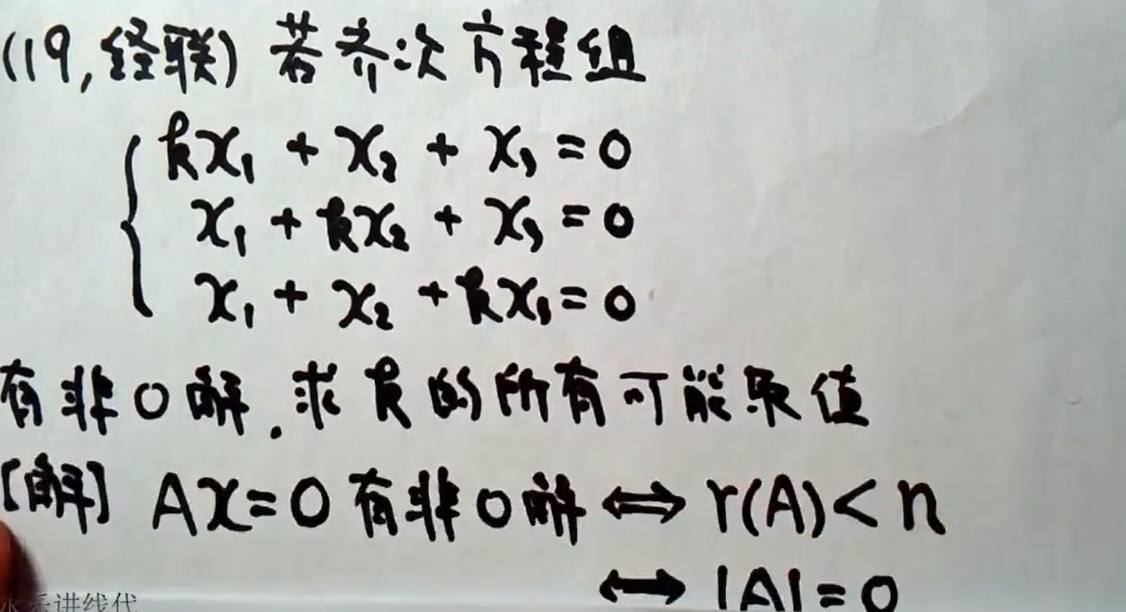 (19,经联) 若齐次方程组
kx₁ + x₂ + x₃ = 0
x₁ + kx₂ + x₃ = 0
x₁ + x₂ + kx₃ = 0
有非0解.求k的所有可能取值
[解] Ax=0有非0解 ⟺ r(A)<n
⟺ |A|=0
讲线代